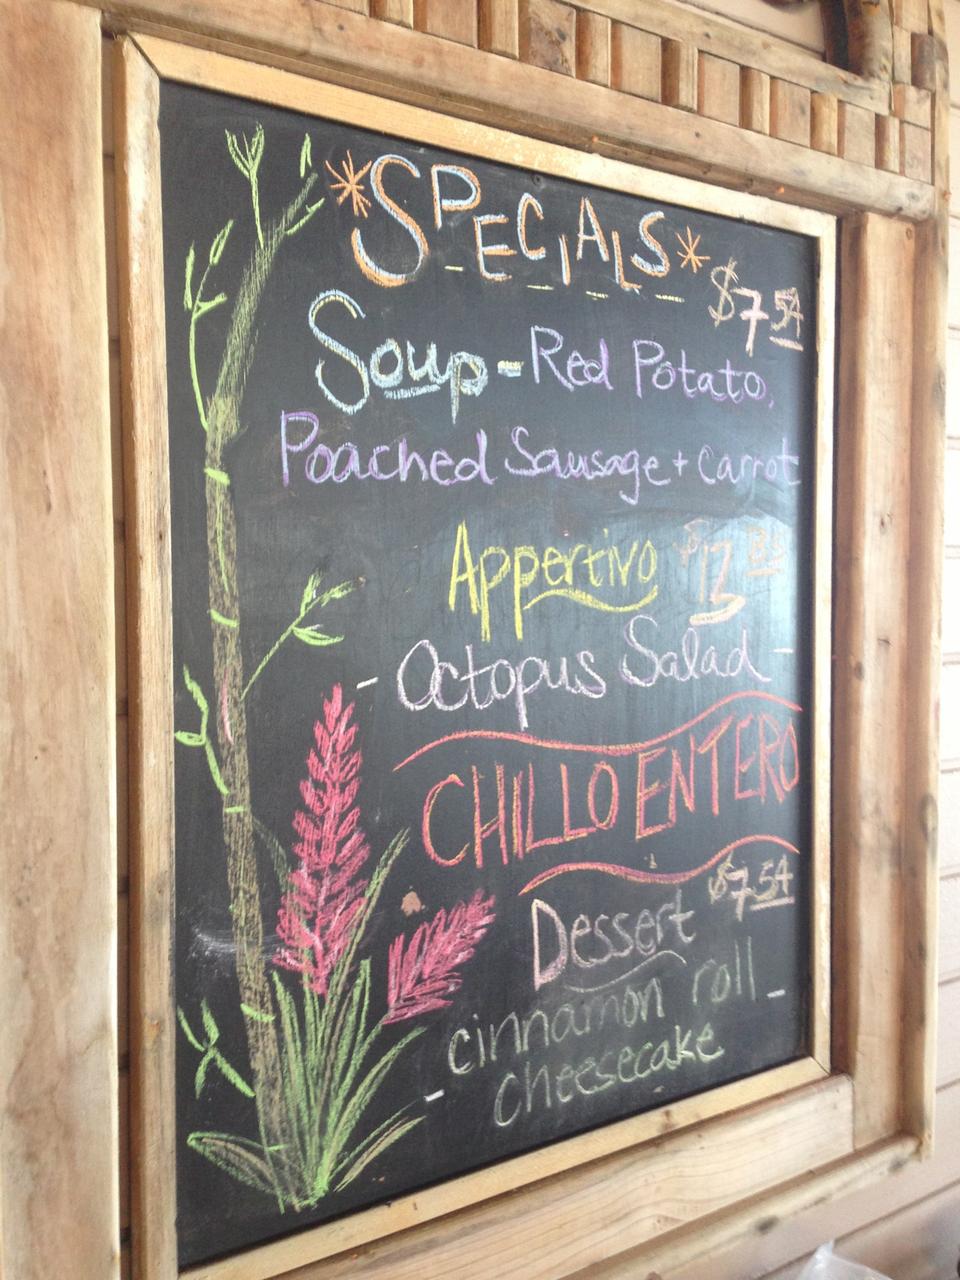 *SPECIALS*
$7.54
Soup - Red Potato,
Poached Sausage + Carrot
Appertivo $13 85
- Octopus Salad -
CHILLO ENTERO
$7.54
Dessert
- cinnamon roll -
cheesecake